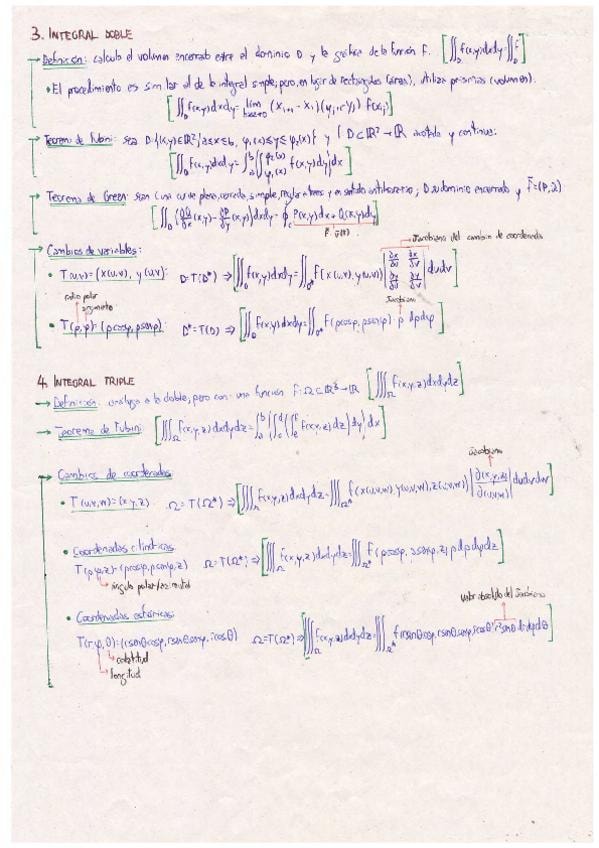 3. INTEGRAL DOBLE
→ Definición: calcula el volumen encerrado entre el dominio D y la gráfica de la función F. [∬_D f(x,y)dxdy = ∬_D F]
• El procedimiento es similar al de la integral simple; pero, en lugar de rectángulos (áreas), utiliza prismas (volumen).
[∬_D f(x,y)dxdy = lím (x_{i+1} - x_i)(y_{i+1} - y_i) f(x_i)]
→ Teorema de Fubini: sea D={(x,y)∈ℝ²/a≤x≤b, φ₁(x)≤y≤φ₂(x)} y f: D⊂ℝ²→ℝ acotada y continua:
[∬_D f(x,y)dxdy = ∫_a^b [∫_{φ₁(x)}^{φ₂(x)} f(x,y)dy] dx]
→ Teorema de Green: sean C una curva plana, cerrada, simple, regular a trozos y en sentido antihorario; D su dominio encerrado y F̄=(P,Q)
[∬_D (∂Q/∂x (x,y) - ∂P/∂y (x,y))dxdy = ∮_C P(x,y)dx + Q(x,y)dy]
→ Cambios de variables:
Jacobiano del cambio de coordenadas
• T(u,v)=(x(u,v), y(u,v)) D=T(D*) ⇒ [∬_D f(x,y)dxdy = ∬_{D*} f(x(u,v), y(u,v)) |∂x/∂u ∂x/∂v ∂y/∂u ∂y/∂v| dudv]
radio polar
argumento
Jacobiano
• T(ρ,φ)=(ρcosφ, ρsenφ) D*=T(D) ⇒ [∬_D f(x,y)dxdy = ∬_{D*} F(ρcosφ, ρsenφ) ρ dρdφ]
4. INTEGRAL TRIPLE
→ Definición: análoga a la doble, pero con una función F: Ω⊂ℝ³→ℝ [∭_Ω f(x,y,z)dxdydz]
→ Teorema de Fubini: [∭_Ω f(x,y,z)dxdydz = ∫_a^b (∫_c^d (∫_e^f f(x,y,z)dz) dy) dx]
→ Cambios de coordenadas:
Jacobiano
• T(u,v,w)=(x,y,z) Ω=T(Ω*) ⇒ [∭_Ω f(x,y,z)dxdydz = ∭_{Ω*} f(x(u,v,w), y(u,v,w), z(u,v,w)) |∂(x,y,z)/∂(u,v,w)| dudvdw]
• Coordenadas cilíndricas:
T(ρ,φ,z)=(ρcosφ, ρsenφ, z) Ω=T(Ω*) ⇒ [∭_Ω f(x,y,z)dxdydz = ∭_{Ω*} f(ρcosφ, ρsenφ, z) ρ dρdφdz]
ángulo polar/azimutal
Valor absoluto del Jacobiano
• Coordenadas esféricas:
T(r,φ,θ)=(rsenθcosφ, rsenθsenφ, rcosθ) Ω=T(Ω*) ⇒ [∭_Ω f(x,y,z)dxdydz = ∭_{Ω*} f(rsenθcosφ, rsenθsenφ, rcosθ) r²senθ drdφdθ]
colatitud
longitud